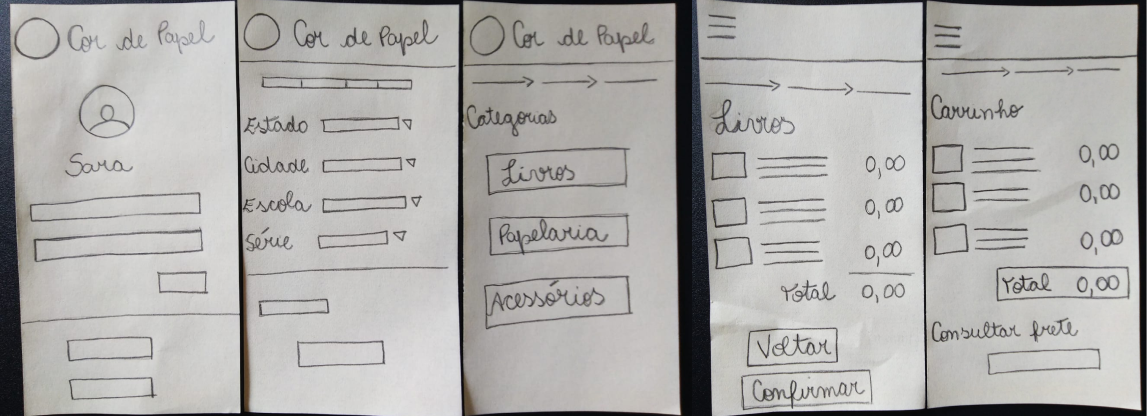 Cor de Papel
Sara
Cor de Papel
Estado
Cidade
Escola
Série
Cor de Papel
Categorias
Livros
Papelaria
Acessórios
Livros
0,00
0,00
0,00
Total 0,00
Voltar
Confirmar
Carrinho
0,00
0,00
0,00
Total 0,00
Consultar frete